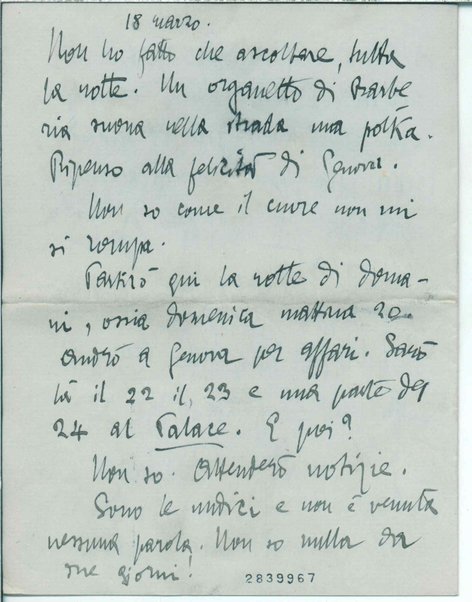 18 marzo.
Non ho fatto che ascoltare, tutta
la notte. Un organetto di Barbe
ria suona nella strada una polka.
Ripenso alla felicità di Genova.
Non so come il cuore non mi
si rompa.
Partirò qui la notte di doma-
ni, ossia domenica mattina 20.
Andrò a Genova per affari. Sarò
là il 22 il, 23 e una parte del
24 al Palace. E poi?
Non so. Attenderò notizie.
Sono le undici e non è venuta
nessuna parola. Non so nulla da
due giorni!
2839967